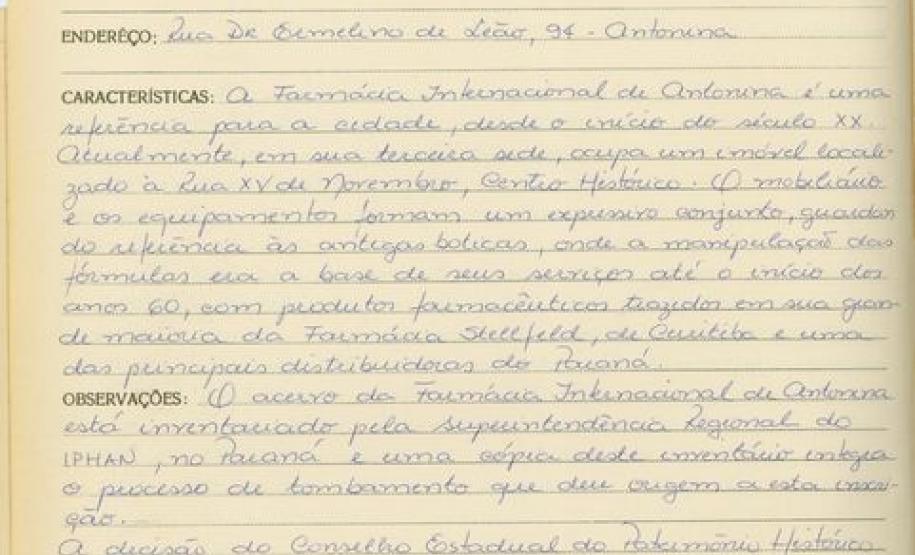 ENDERÊÇO: Rua Dr Ermelino de Leão, 94 - Antonina
CARACTERÍSTICAS: A Farmácia Internacional de Antonina é uma
referência para a cidade, desde o início do século XX.
Atualmente, em sua terceira sede, ocupa um imóvel locali-
zado à Rua XV de Novembro, Centro Histórico. O mobiliário
e os equipamentos formam um expressivo conjunto, guardan
do referência às antigas boticas, onde a manipulação das
fórmulas era a base de seus serviços até o início dos
anos 60, com produtos farmacêuticos trazidos em sua gran-
de maioria da Farmácia Stellfeld, de Curitiba e uma
das principais distribuidoras do Paraná.
OBSERVAÇÕES: O acervo da Farmácia Internacional de Antonina
está inventariado pela Superintendência Regional do
IPHAN, no Paraná e uma cópia deste inventário integra
o processo de tombamento que deu origem a esta inscri-
ção.
A decisão do Conselho Estadual do Patrimônio Histórico